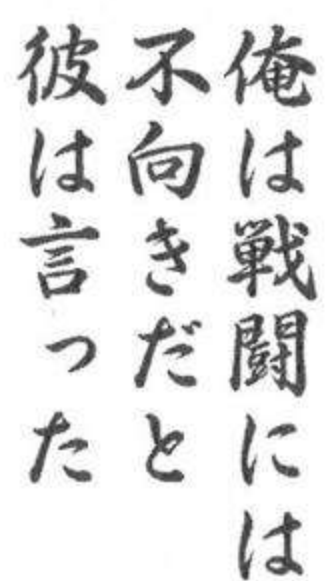 俺は戦闘には
不向きだと
彼は言った